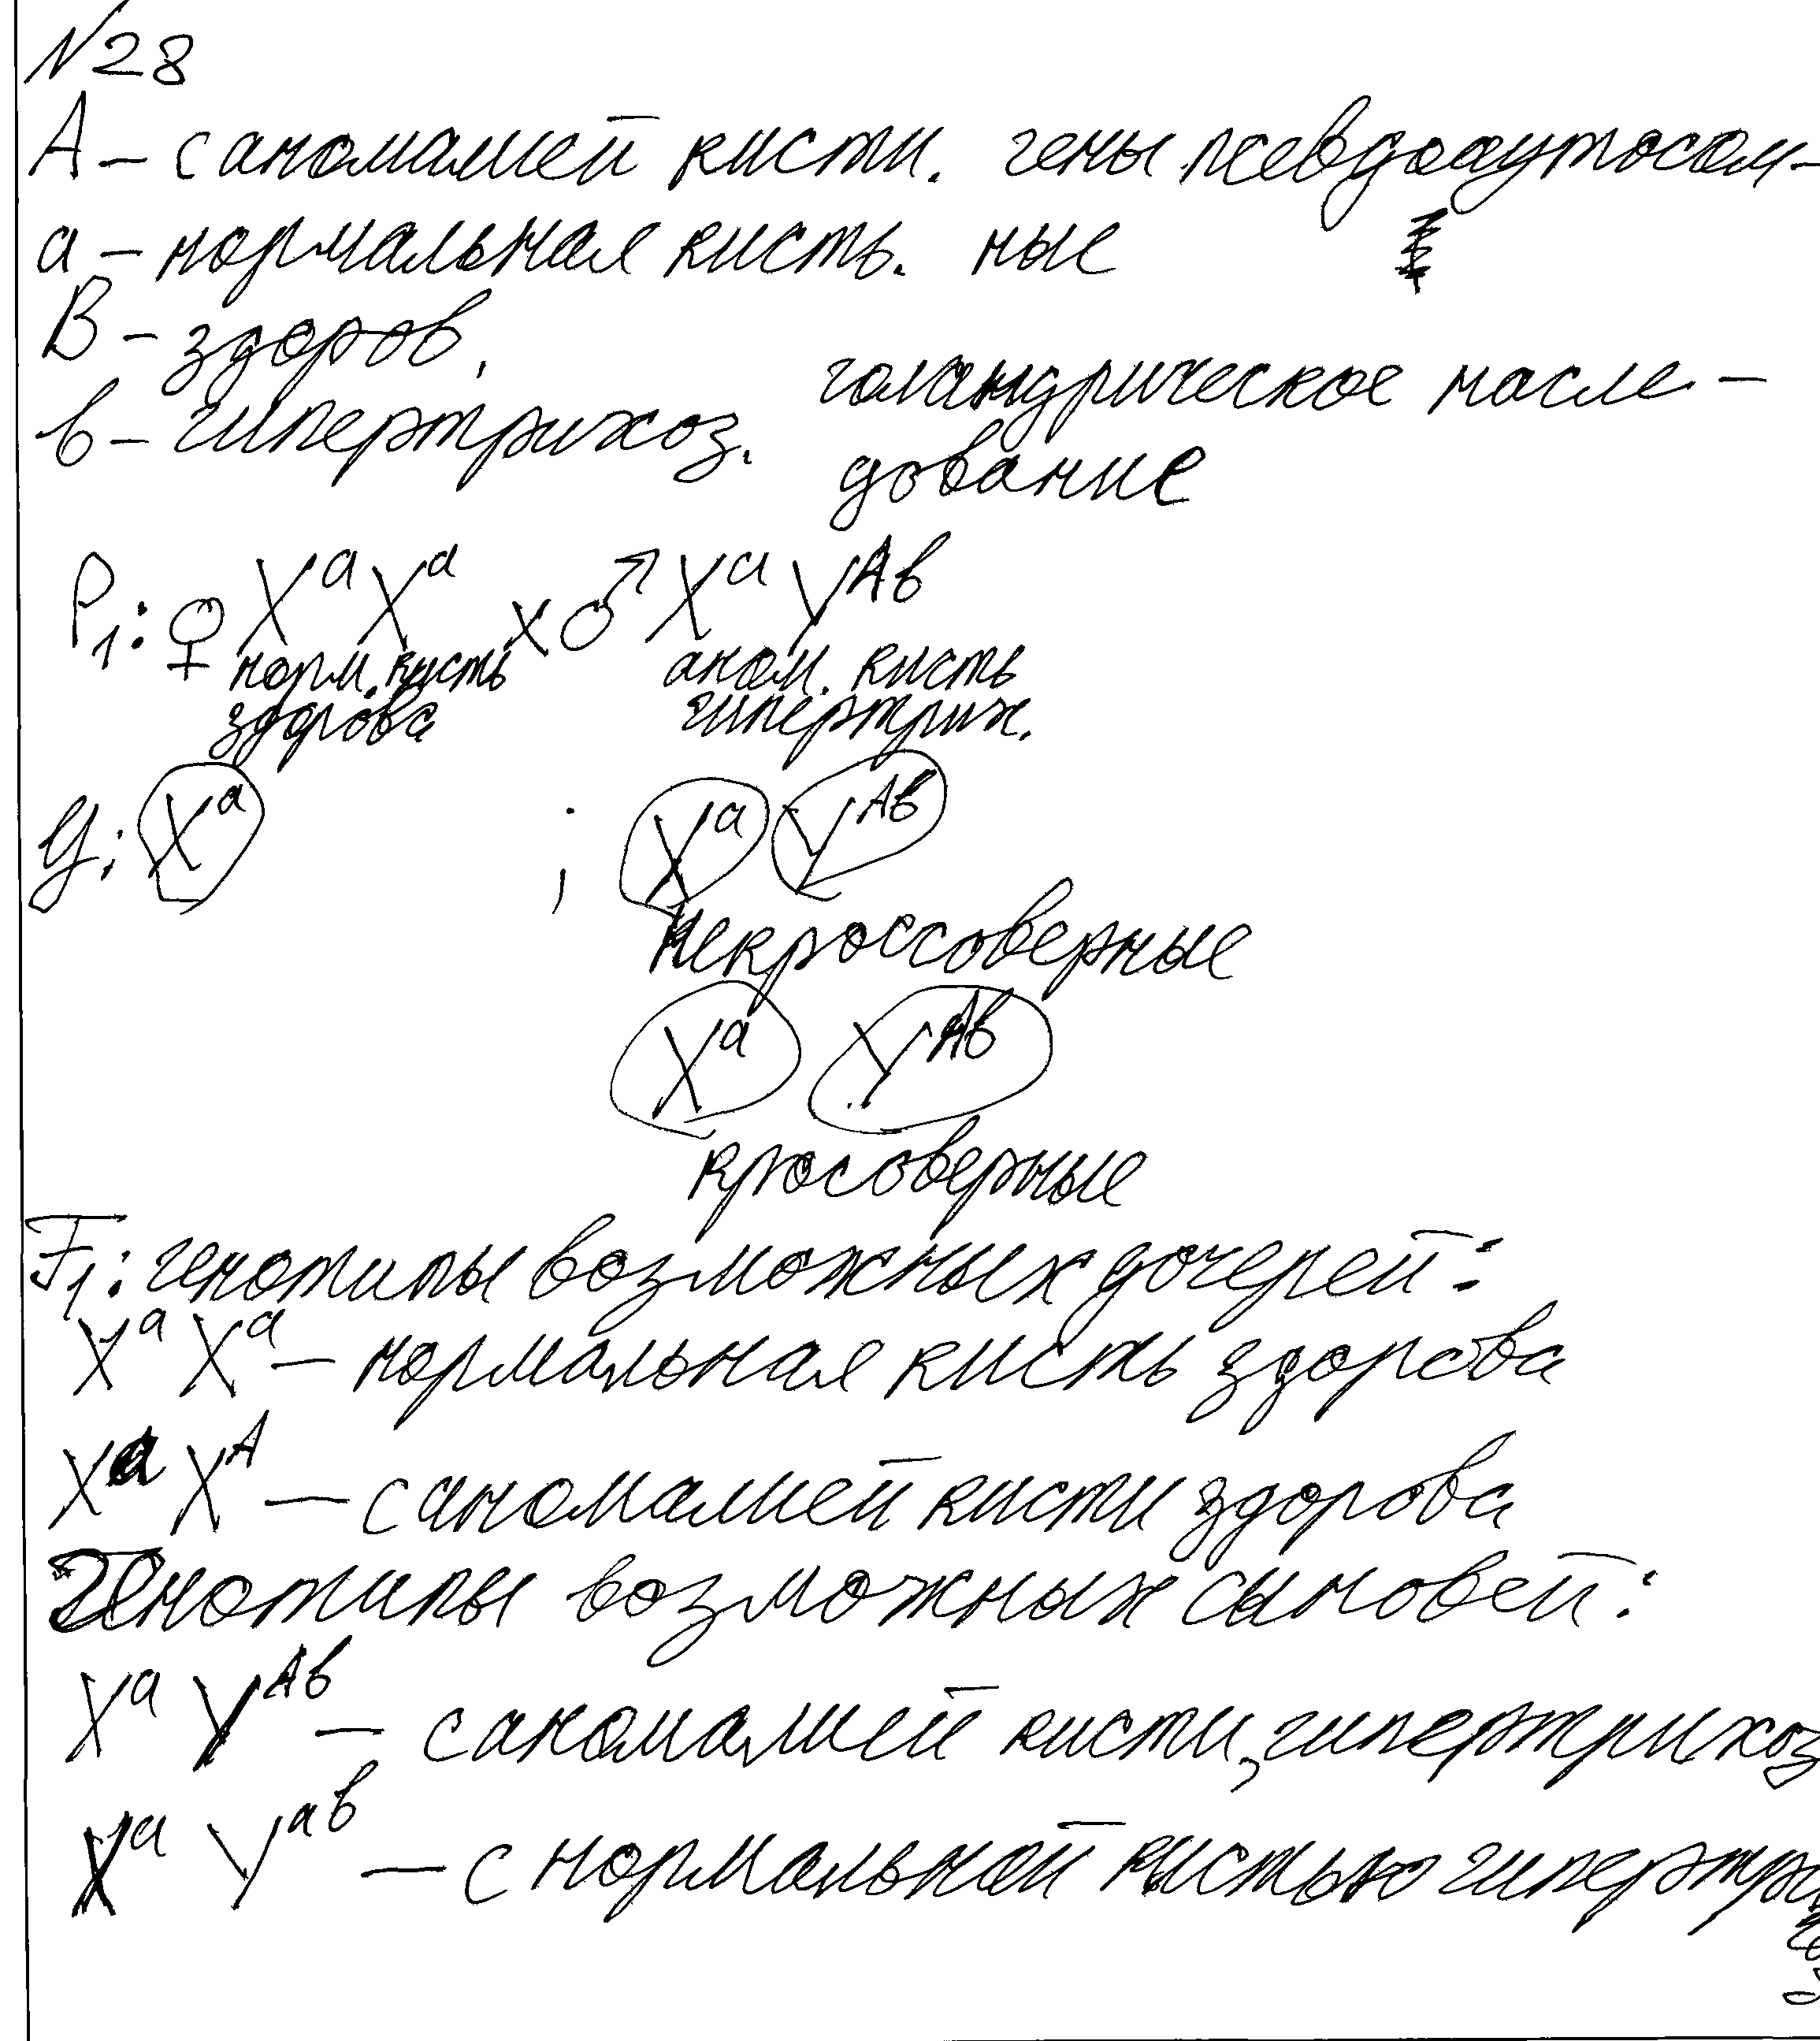 N28
А – с аномалией кисти. гены псевдоаутосом-
а – нормальная кисть. ные
В – здоров.
в – гипертрихоз. голандрическое насле-
дование
P₁: ♀ XᵃXᵃ x ♂ XᵃYᴬᵇ
норм. кисть аном. кисть
здорова гипертрих.
G: Xᵃ ; Xᵃ Yᴬᵇ
некроссоверные
Xᵃ Yᴬᵇ
кросоверные
F₁: генотипы возможных дочерей:
Xᵃ Xᵃ – нормальная кисть здорова
Xᵃ Xᴬ – с аномалией кисти здорова
Генотипы возможных сыновей:
Xᵃ Yᴬᵇ – с аномалией кисти, гипертрихоз
Xᵃ Yᵃᵇ – с нормальной кистью